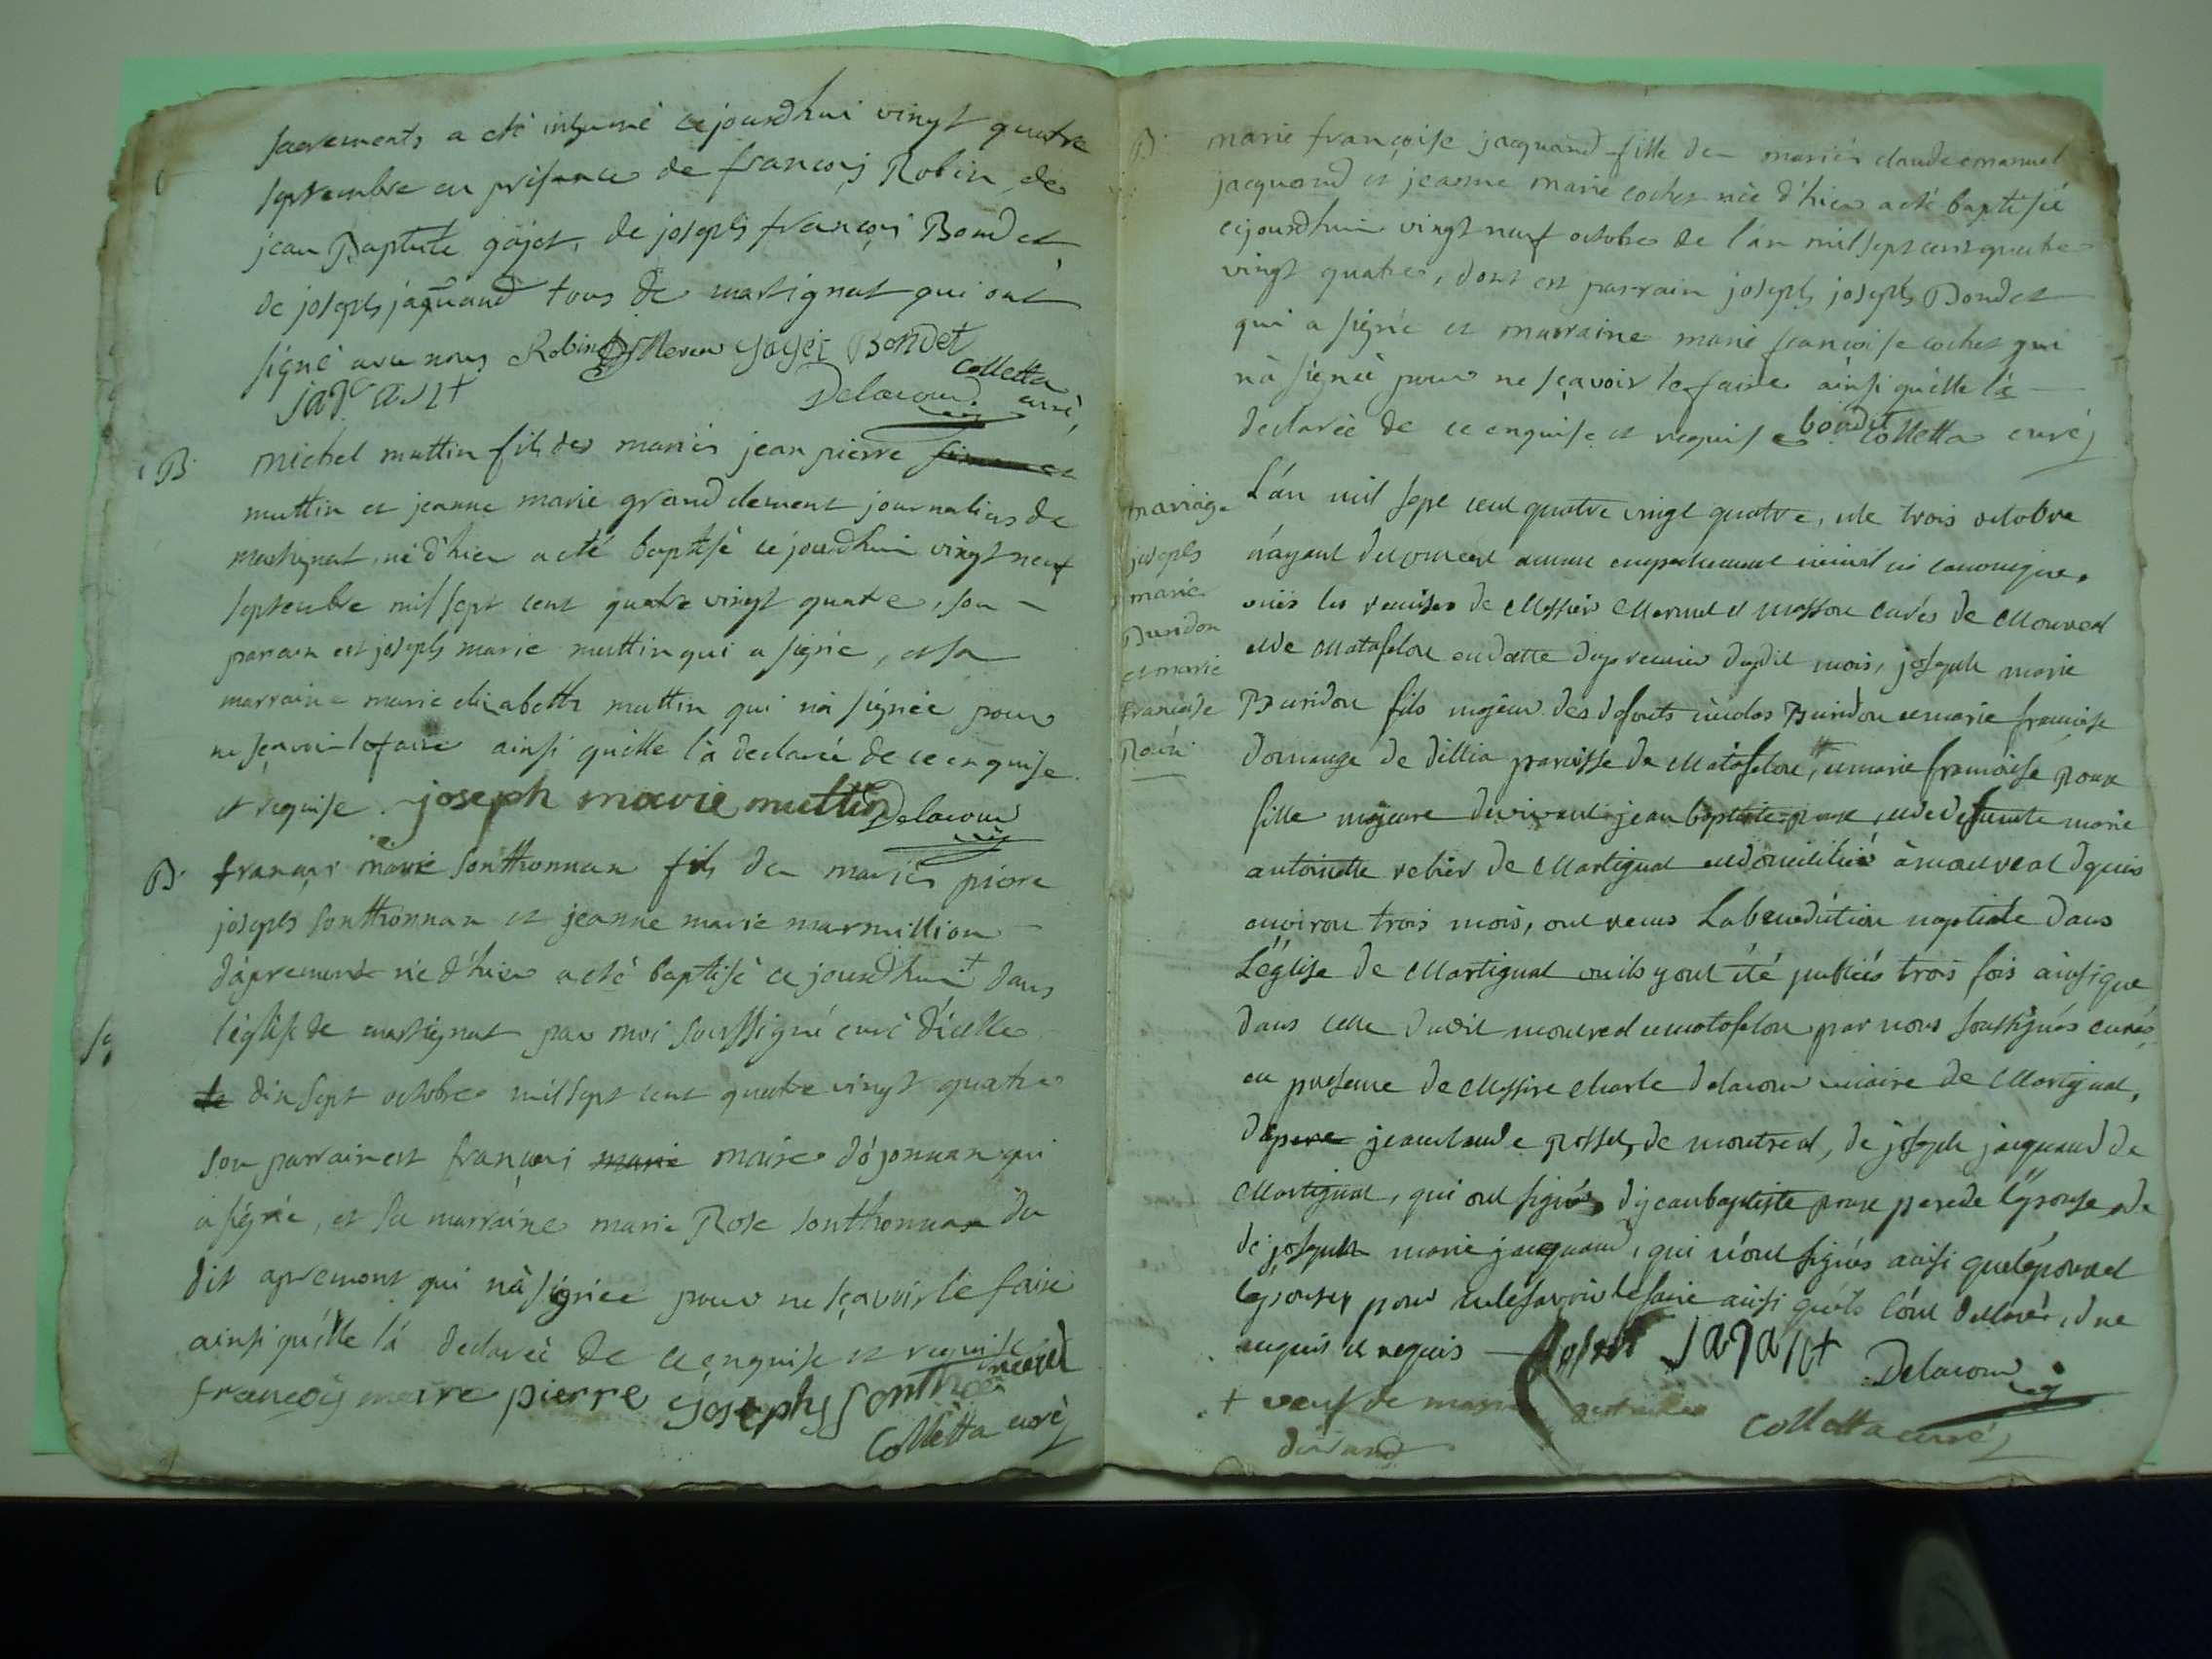 sacrements a eté inhumé cejourdhui vingt quatre
septembre en présence de françois Robin, de
jean Baptiste gojet, de joseph françois Bondet
de joseph jaquand tous de martignat qui ont
signé avec nous Robin gojet Bondet
Colletta
Delacour curé
B michel muttin fils des mariés jean pierre
muttin et jeanne marie grandclement journaliers de
martignat, né d'hier a eté baptisé cejourdhui vingt neuf
septembre mil sept cent quatre vingt quatre, son
parain est joseph marie muttin qui a signé, et sa
marraine marie elizabeth muttin qui n'a signée pour
ne sçavoir le faire ainsi qu'elle l'a declarée de ce enquise
et requise. joseph marie muttin Delacour
B françois marie sonthonnax fils des mariés pierre
joseph sonthonnax et jeanne marie marmillion
d'apremont né d'hier a eté baptisé ce jourdhui + dans
l'église de martignat par moi soussigné curé d'icelle
le dix sept octobre mil sept cent quatre vingt quatre
son parrain est françois marie maire d'ojonnax qui
a signé, et sa marraine marie Rose sonthonnax du
dit apremont qui n'a signée pour ne sçavoir le faire
ainsi qu'elle l'a declarée de ce enquise et requise
françois maire pierre joseph sonthonnax
Colletta curé
B marie françoise jacquand fille des mariés claude emanuel
jacquand et jeanne marie cochet née d'hier a eté baptisée
cejourdhui vingt neuf octobre de l'an mil sept cent quatre
vingt quatre, dont est parrain joseph joseph Bondet
qui a signé et marraine marie françoise cochet qui
n'a signée pour ne sçavoir le faire ainsi qu'elle l'a
declarée de ce enquise et requise bondet Colletta curé
mariage
joseph
marie
Buridon
et marie
françoise
Roux
L'an mil sept cent quatre vingt quatre, et le trois octobre
n'ayant decouvert aucun empechement civil ni canonique,
vües les remises de Messires et Masson curés de Montreal
et de Matafelon en datte du premier dudit mois, joseph marie
Buridon fils majeur des defunts nicolas Buridon et marie françoise
domange de dillia paroisse de Matafelon, + et marie françoise Roux
fille majeure du vivant jean baptiste roux, et de defunte marie
antoinette de Martignat et domiciliée à montreal depuis
environ trois mois, ont reçus La benediction nuptiale dans
L'église de Martignat où ils y ont été publiés trois fois ainsi que
dans celle dudit montreal et matafelon par nous soussignés curés
en presence de Messire Charle delacour vicaire de Martignat,
de jean claude Rosset de montreal, de joseph jacquand de
Martignat, qui ont signés, de jean baptiste roux pere de l'épouse, de
de joseph marie jacquand, qui n'ont signés ainsi que l'époux et
l'épouse, pour ne le savoir le faire ainsi qu'ils l'ont declaré, de ce
enquis et requis Rosset Delacour
+ veuf de marie
durand Colletta curé